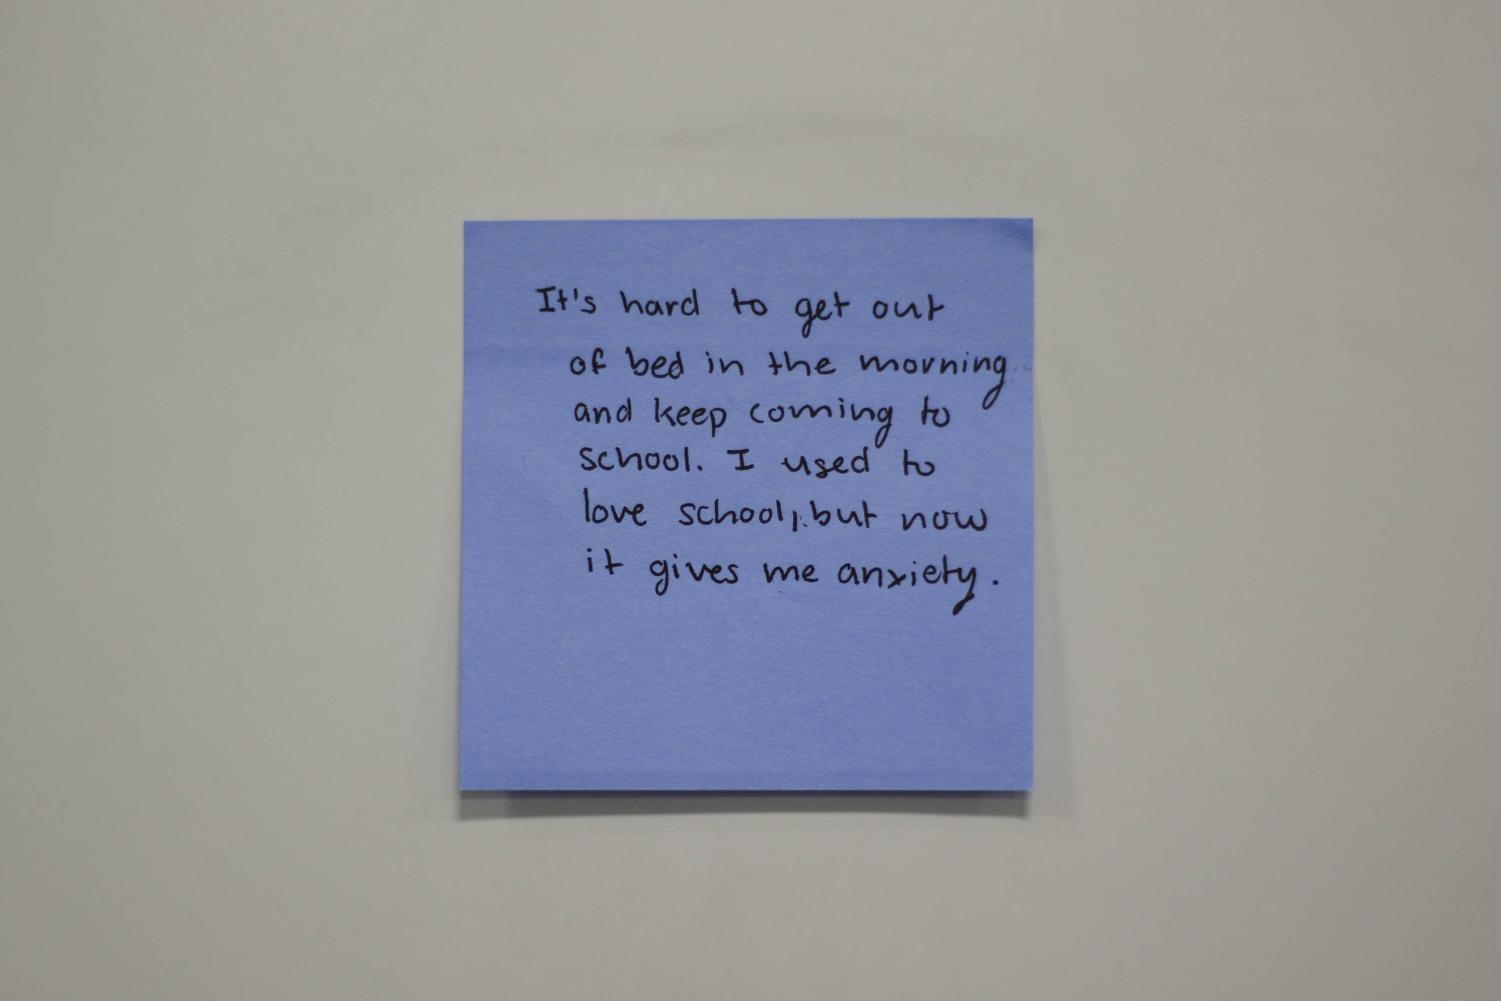 It's hard to get out
of bed in the morning
and keep coming to
school. I used to
love school, but now
it gives me anxiety.